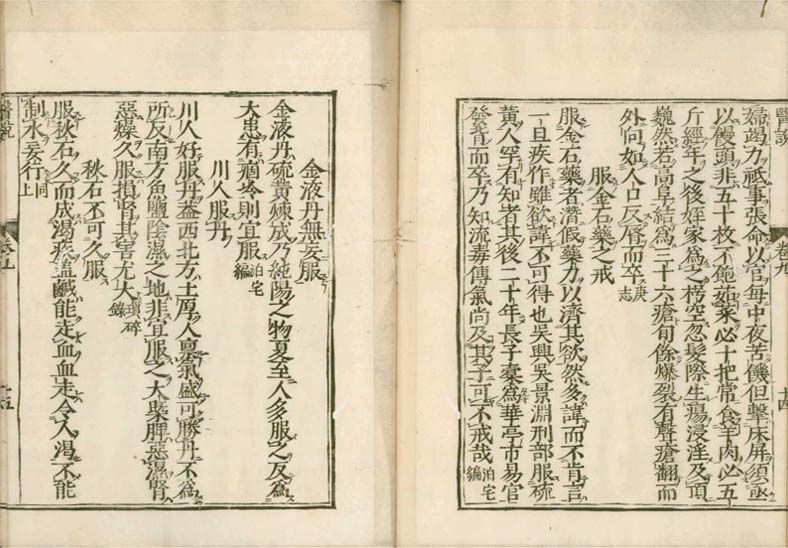 醫說
卷九
十四
婦竭力祇事張命以官每中夜苦饑但擊床屏須亟
以饅頭非五十枚不飽茹菜必十把常食羊肉必五
斤經年之後姪家為之枵空忽髮際生瘍浸淫及頂
巍然若高阜結為三十六瘡旬餘爆裂有聲瘡翻而
外向如人口反唇而卒庚志
服金石藥之戒
服金石藥者潛假藥力以濟其欲然多諱而不肯言
一旦疾作雖欲諱不可得也吳興吳景淵刑部服硫
黃人罕有知者其後二十年長子橐為華亭市易官
發背而卒乃知流毒傳氣尚及其子可不戒哉泊宅編
金液丹無妄服
金液丹硫黃煉成乃純陽之物夏至人多服之反為
大患有痼冷則宜服泊宅編
川人服丹
川人好服丹蓋西北方土厚人稟氣盛可勝丹不
所反南方魚鹽陰濕之地非宜服之大率脾惡濕腎
惡燥久服損腎其害尤大瑣碎錄
秋石不可久服
服秋石久而成渴疾蓋鹹能走血血走令人渴不能
制水妄行同上
醫說
卷九
十五